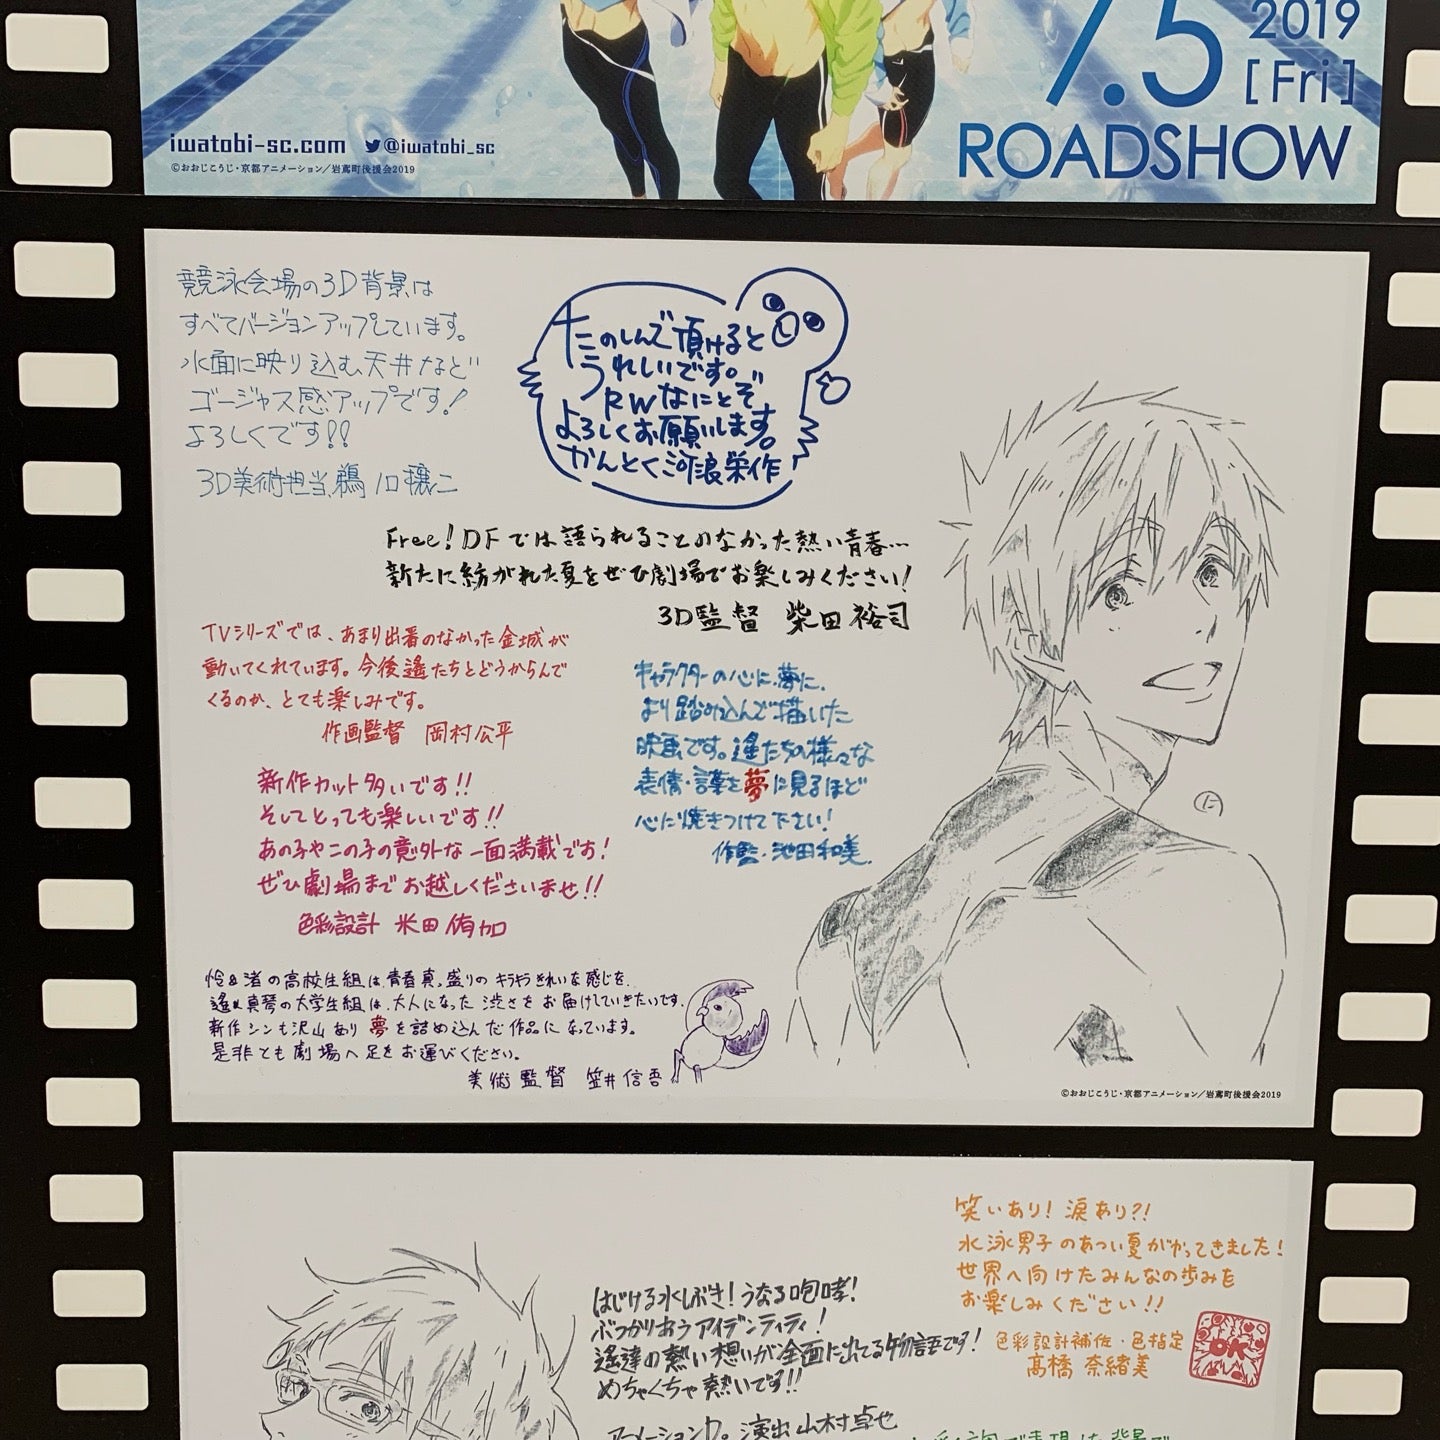 7.5
2019
[Fri]
ROADSHOW
iwatobi-sc.com
@iwatobi_sc
©おおじこうじ・京都アニメーション/岩鳶町後援会2019
競泳会場の3D背景は
すべてバージョンアップしています。
水面に映り込む天井など
ゴージャス感アップです!
よろしくです!!
3D美術担当 鵜ノ口穣二
たのしんで頂けると
うれしいです。
RWなにとぞ
よろしくお願いします。
かんとく河浪栄作
Free! DFでは語られることのなかった熱い青春…
新たに紡がれた夏をぜひ劇場でお楽しみください!
3D監督 柴田裕司
TVシリーズでは、あまり出番のなかった金城が
動いてくれています。今後遙たちとどうからんで
くるのか、とても楽しみです。
作画監督 岡村公平
キャラクターの心に、夢に、
より踏み込んで描いた
映画です。遙たちの様々な
表情・言葉を夢に見るほど
心に焼きつけて下さい!
作監・池田和美
新作カット多いです!!
そしてとっても楽しいです!!
あの子やこの子の意外な一面満載です!
ぜひ劇場までお越しくださいませ!!
色彩設計 米田侑加
怜&渚の高校生組は青春真っ盛りのキラキラきれいな感じを、
遙&真琴の大学生組は、大人になった渋さをお届けしていきたいです。
新作シンも沢山あり夢を詰め込んだ作品になっています。
是非とも劇場へ足をお運びください。
美術監督 笠井信吾
©おおじこうじ・京都アニメーション/岩鳶町後援会2019
笑いあり!涙あり?!
水泳男子のあつい夏がやってきました!
世界へ向けたみんなの歩みを
お楽しみください!!
色彩設計補佐・色指定
髙橋 奈緒美
OK
はじける水しぶき!うなる咆哮!
ぶつかりあうアイデンティティ!
遙達の熱い想いが全面に出てる物語です!
めちゃくちゃ熱いです!!
アニメーションD。演出 山村卓也